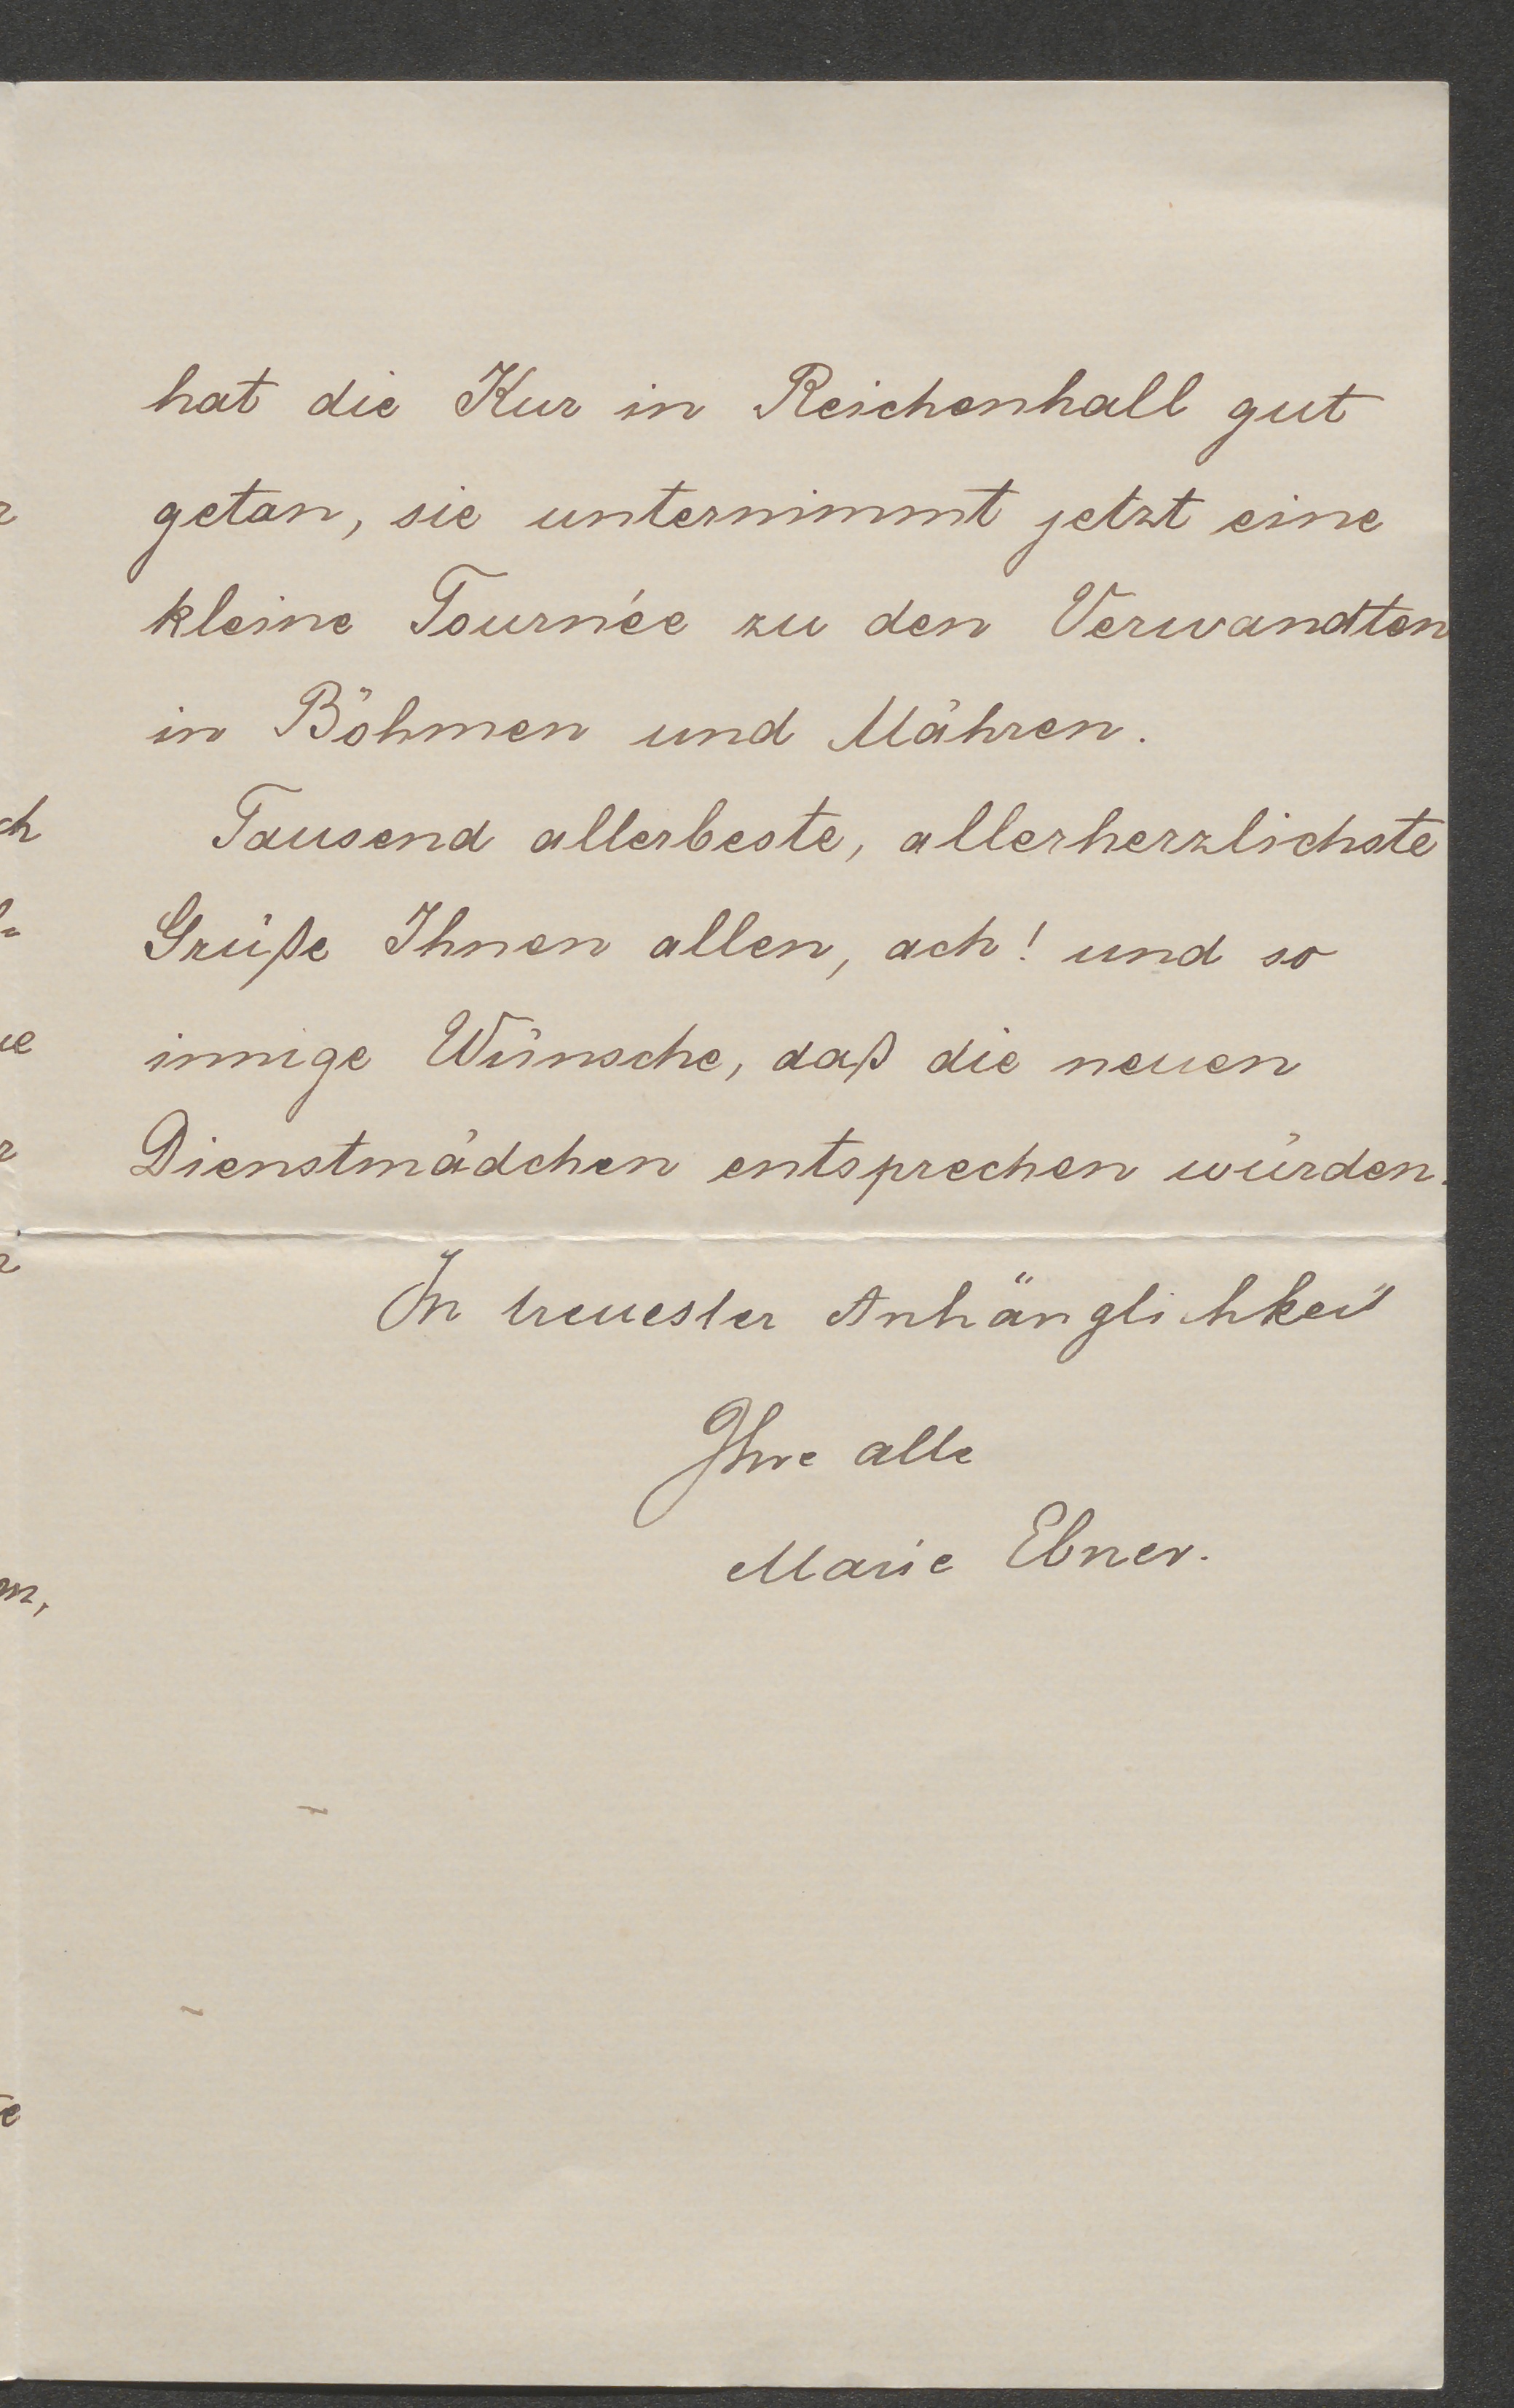 hat die Kur in Reichenhall gut
getan, sie unternimmt jetzt eine
kleine Tournée zu den Verwandten
in Böhmen und Mähren.
Tausend allerbeste, allerherzlichste
Grüße Ihnen allen, ach! und so
innige Wünsche, daß die neuen
Dienstmädchen entsprechen würden.
In treuester Anhänglichkeit
Ihre alte
Marie Ebner.